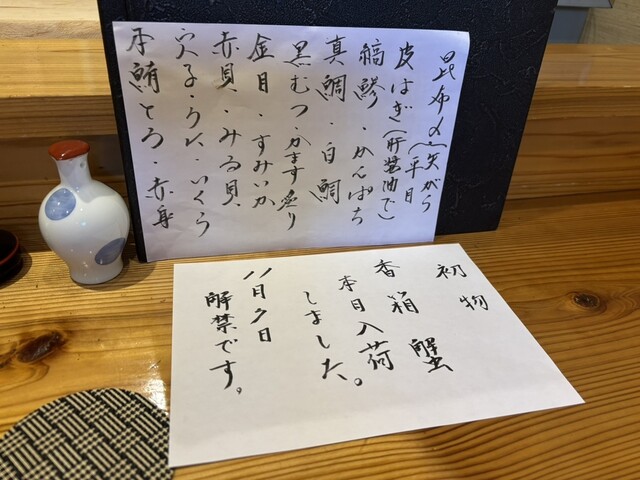 昆布〆(矢がら 平目
皮はぎ(肝醤油で)
縞鯵・かんぱち
真鯛・白鯛
黒むつ・かます炙り
金目・すみいか
赤貝・みる貝
穴子・うに・いくら
本鮪とろ・赤身
初物
香箱蟹
本日入荷
しました。
八月夕日
解禁です。